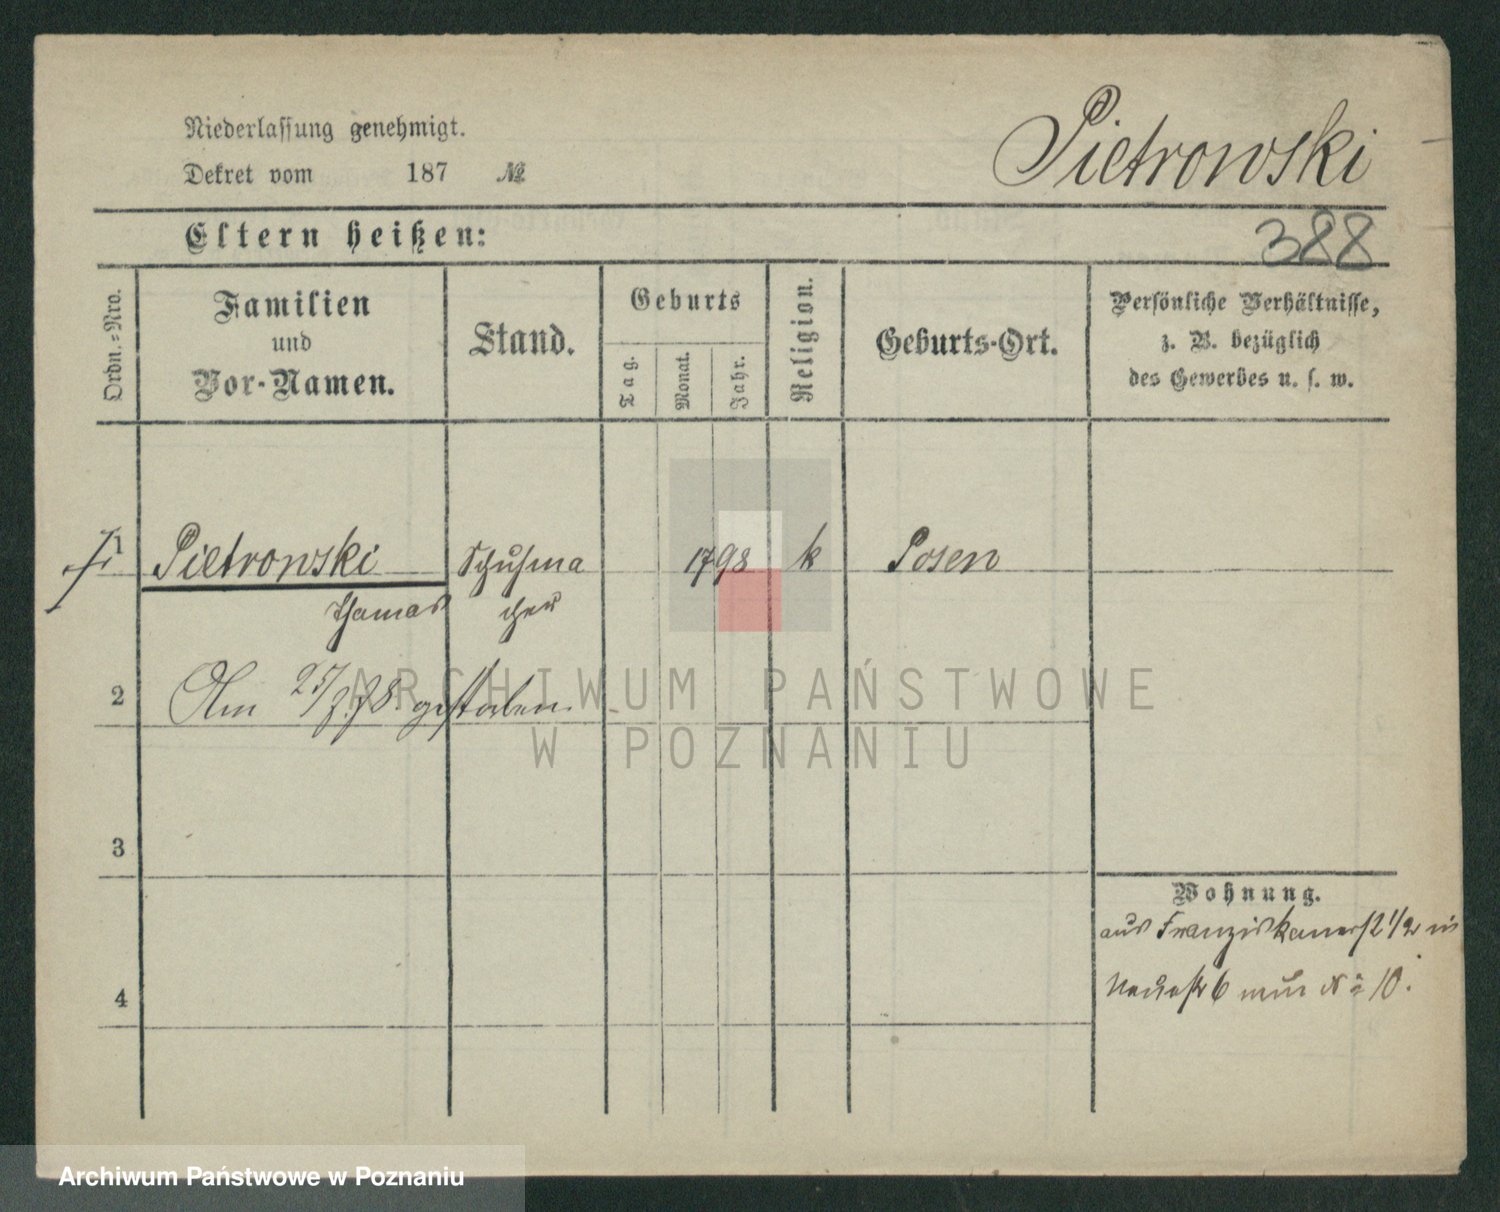 Niederlassung genehmigt.
Dekret vom 187 №
Pietrowski
Eltern heißen:
388
Ordn.=Nro.
Familien
und
Vor-Namen.
Stand.
Geburts
Tag.
Monat.
Jahr.
Religion.
Geburts-Ort.
Persönliche Verhältnisse,
z. B. bezüglich
des Gewerbes u. s. w.
1 Pietrowski Schuhma 1798 k Posen
Thomas cher
2 Am gestorben.
ARCHIWUM PAŃSTWOWE
W POZNANIU
3
Wohnung.
aus Franziskanerst 2 1/2 in
6 10.
4
Archiwum Państwowe w Poznaniu